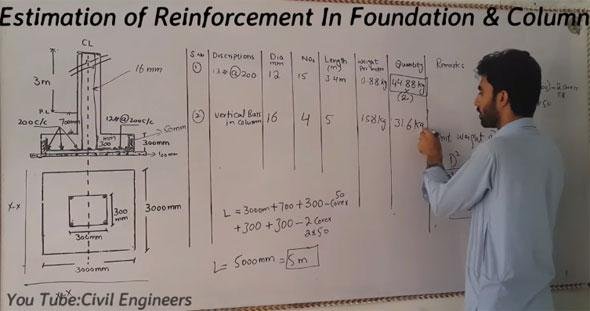 Estimation of Reinforcement In Foundation & Column
CL
3m
16mm
200c/c
700mm
12#@200c/c
50mm
300
300mm
100mm
x-x
300 mm
300mm
3000mm
3000mm
S.No Discriptions Dia mm Nos Length (m) Weight Per meter Quantity Remarks
1 12#@200 12 15 3.4m 0.88kg 44.88kg
(2)
2 Vertical Bars in Column 16 4 5 1.58kg 31.6kg
D²
L = 3000m + 700 + 300 - 50 cover
+ 300 + 300 - 2 cover
2x50
L = 5000mm = 5m
You Tube:Civil Engineers